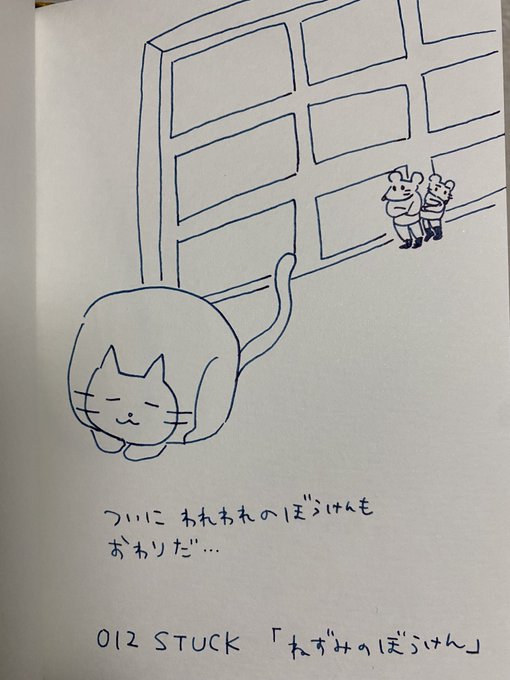 ついに われわれのぼうけんも
おわりだ…
012 STUCK 「ねずみのぼうけん」